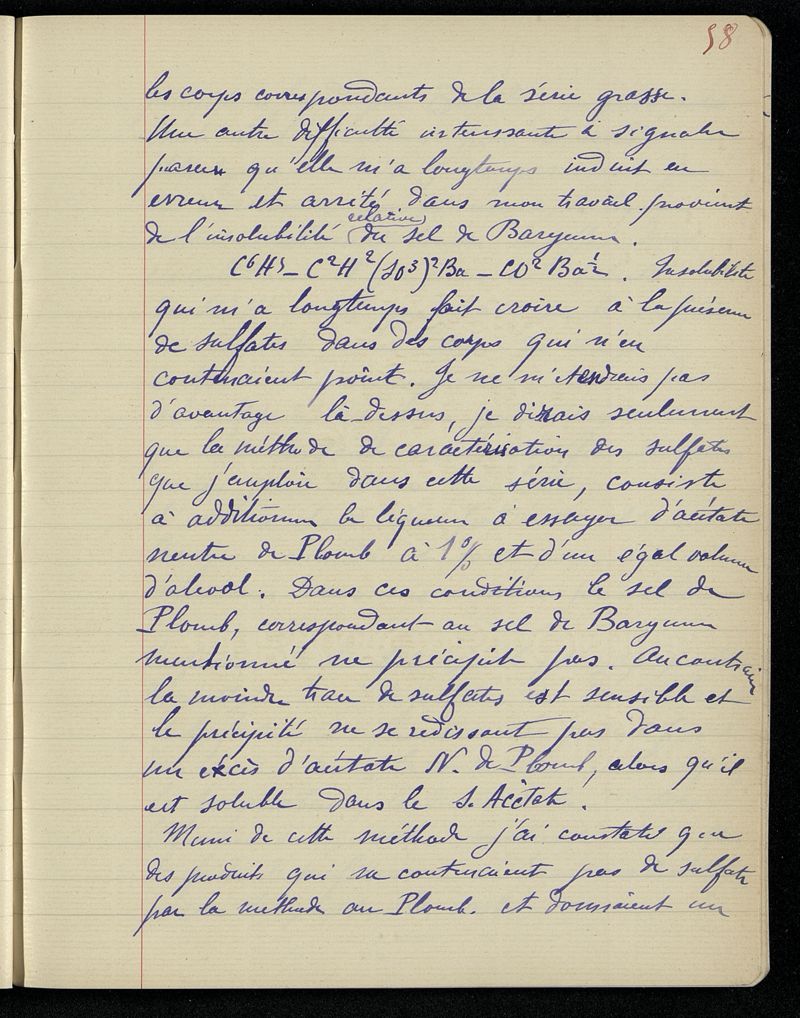 58
les corps correspondants de la série grasse.
Une autre difficulté intéressante à signaler
parce qu'elle m'a longtemps induit en
erreur et arrêté dans mon travail provient
de l'insolubilité relative du sel de Baryum.
C⁶H⁵ – C²H²(SO³)²Ba – CO² Ba½. Insolubilité
qui m'a longtemps fait croire à la présence
de sulfates dans des corps qui n'en
contenaient point. Je ne m'étendrais pas
d'avantage là-dessus, je dirais seulement
que la méthode de caractérisation des sulfates
que j'emploie dans cette série, consiste
à additionner la liqueur à essayer d'acétate
neutre de Plomb à 1% et d'un égal volume
d'alcool. Dans ces conditions le sel de
Plomb, correspondant au sel de Baryum
mentionné ne précipite pas. Au contraire
la moindre trace de sulfates est sensible et
le précipité ne se redissout pas dans
un excès d'acétate N. de Plomb, alors qu'il
est soluble dans le S. Acétate.
Muni de cette méthode j'ai constaté que
des produits qui ne contenaient pas de sulfate
par la methode au Plomb. et donnaient un